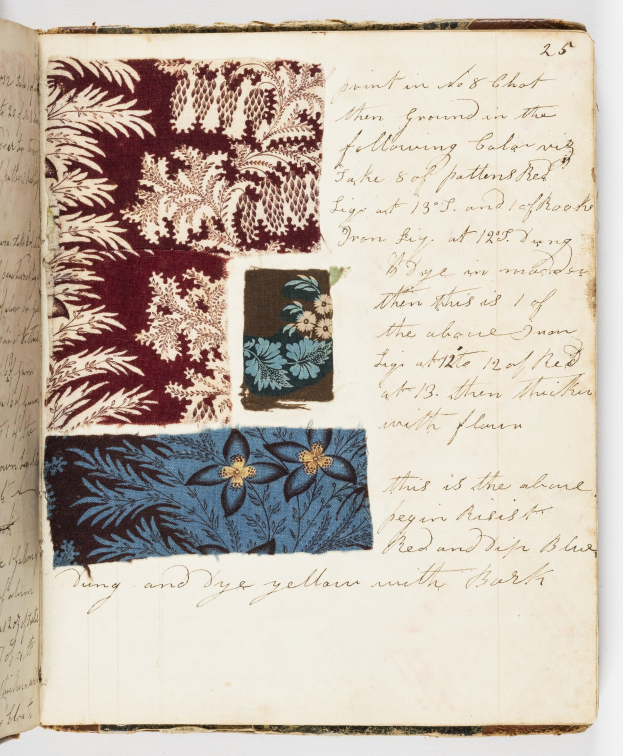 25
print in No 8 Chot
then Ground in the
following Color viz
Take 8 of pattens Red
Liqr at 13°S. and 1 of Rooke
Iron Liq. at 12°S. Dung
& Dye in madder
then this is 1 of
the above Iron
Liqr at 12 to 12 of Red
at 13. then thicken
with flour
this is the above
pegin Risist
Red and Dip Blue
Dung and Dye yellow with Bark